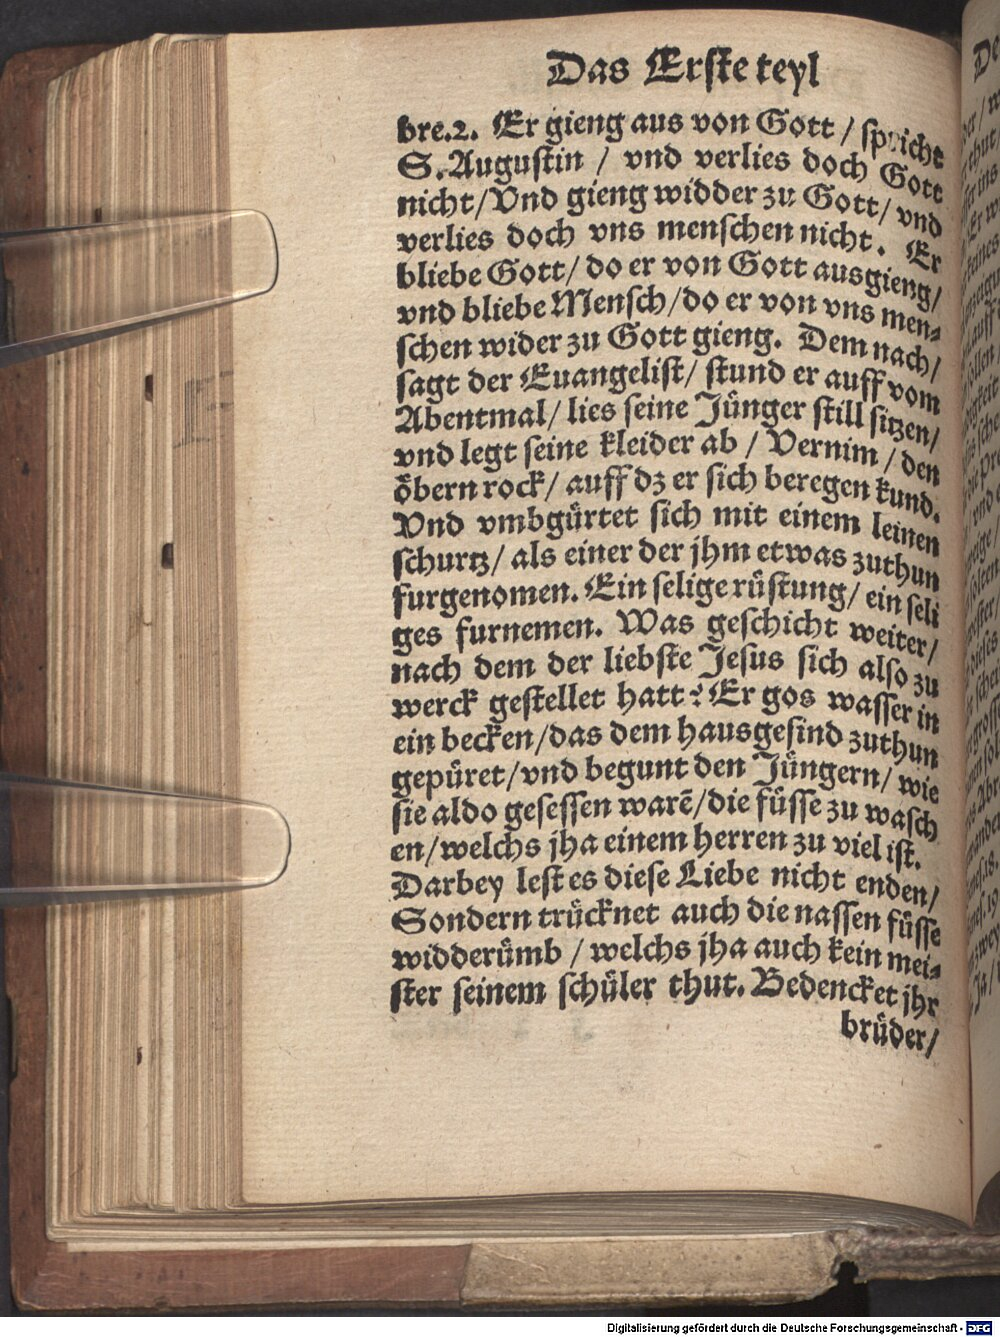 Das Erste teyl
bre.2. Er gieng aus von Gott / spricht
S. Augustin / vnd verlies doch Gott
nicht/Vnd gieng widder zu Gott/ vnd
verlies doch vns menschen nicht. Er
bliebe Gott/ do er von Gott ausgieng/
vnd bliebe Mensch/do er von vns men⸗
schen wider zu Gott gieng. Dem nach/
sagt der Euangelist/ stund er auff vom
Abentmal/ lies seine Jünger still sitzen/
vnd legt seine kleider ab / Vernim / den
öbern rock/ auff dz er sich beregen kund.
Vnd vmbgürtet sich mit einem leinen
schurtz/ als einer der jhm etwas zuthun
furgenomen. Ein selige rüstung/ ein seli
ges furnemen. Was geschicht weiter/
nach dem der liebste Jesus sich also zu
werck gestellet hatt? Er gos wasser in
ein becken/das dem hausgesind zuthun
gepüret/vnd begunt den Jüngern/ wie
sie aldo gesessen warē/die füsse zu wasch
en/welchs jha einem herren zu viel ist.
Darbey lest es diese Liebe nicht enden/
Sondern trücknet auch die nassen füsse
widderümb / welchs jha auch kein mei⸗
ster seinem schüler thut. Bedencket jhr
brüder/
Digitalisierung gefördert durch die Deutsche Forschungsgemeinschaft - DFG